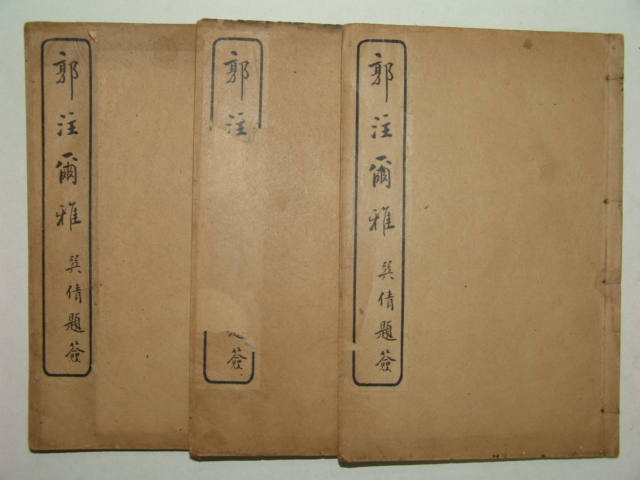 郭注爾雅 吳倩題簽
郭注 簽
郭注爾雅 吳倩題簽